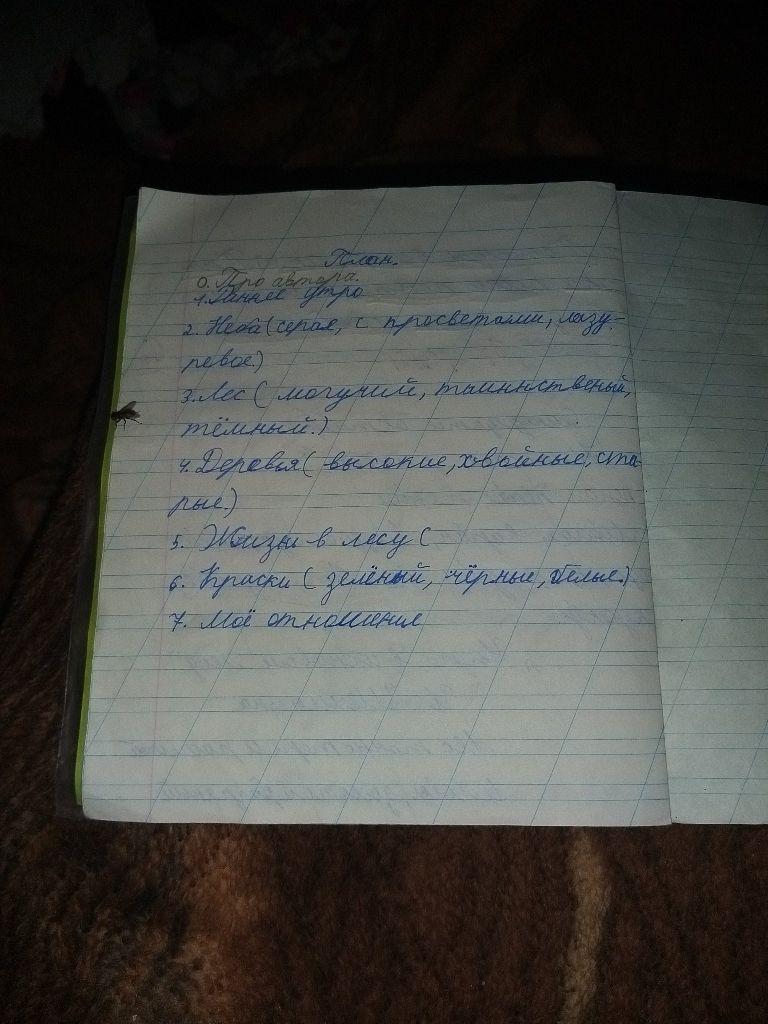 План.
0. Про автора.
1. Раннее утро
2. Неба (серая, с просветами, лазу-
ревое.)
3. Лес ( могучий, таиннственый,
тёмный.)
4. Деревья ( высокие, хвойные, ста-
рые.)
5. Жизы в лесу (
6. Краски ( зелёный, чёрные, белые.)
7. Моё отношение